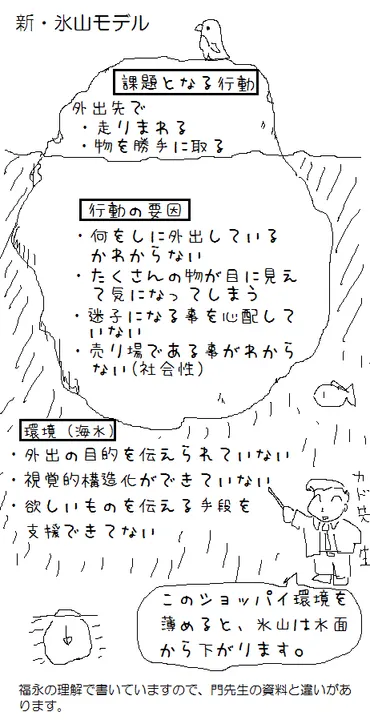 新・氷山モデル
課題となる行動
外出先で
・走りまれる
・物を勝手に取る
行動の要因
・何をしに外出している
かわからない
・たくさんの物が目に見え
て気になってしまう
・迷子になる事を心配して
いない
・売り場である事がわから
ない(社会性)
環境(海水)
・外出の目的を伝えられていない
・視覚的構造化ができていない
・欲しいものを伝える手段を
支援できてない
カド先生
このショッパイ環境を
薄めると、氷山は水面
から下がります。
福永の理解で書いていますので、門先生の資料と違いがあ
ります。